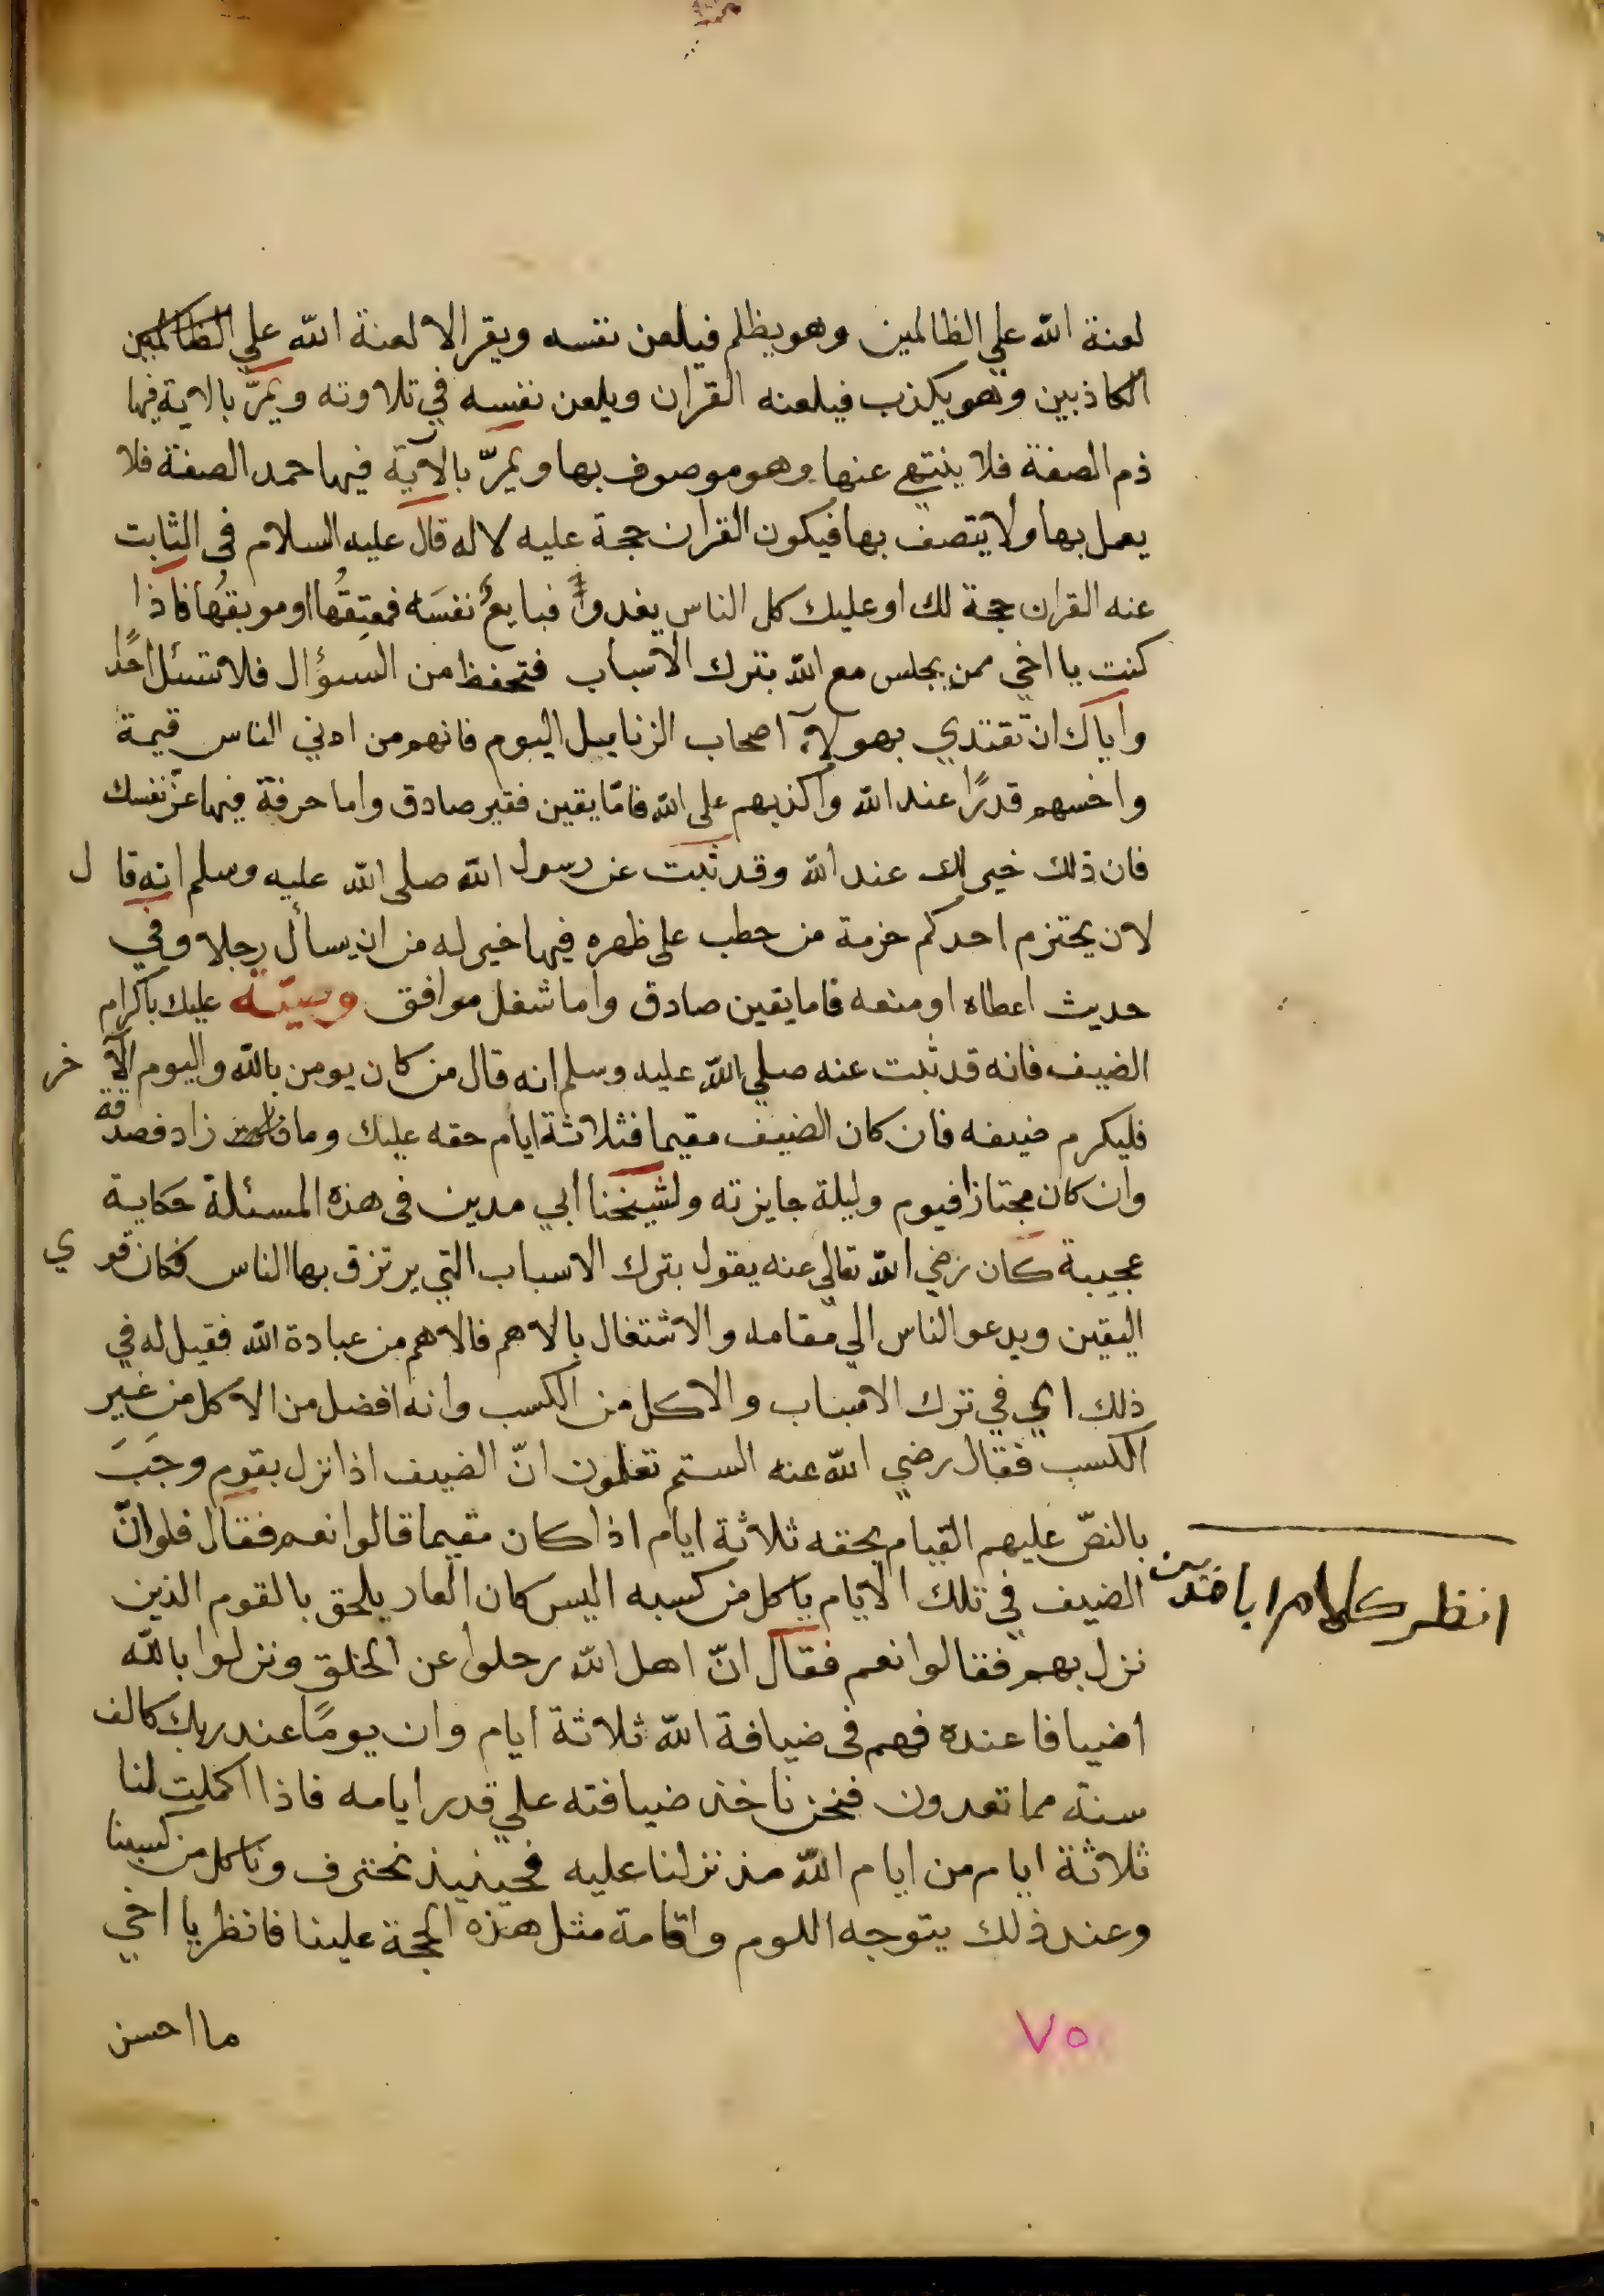 لعنة الله علي الظالمين وهو يظلم فيلعن نفسه ويقر الا لعنة الله علي الظالمين
الكاذبين وهو يكذب فيلعنه القران ويلعن نفسه في تلاوته ويمرّ بالاية فيها
ذم الصفة فلا ينتهي عنها وهو موصوف بها ويمرّ بالآية فيها حمد الصفة فلا
يعمل بها ولا يتصف بها فيكون القران حجة عليه لا له قال عليه السلام في الثابت
عنه القران حجة لك او عليك كل الناس يغدوا فبايعٌ نفسَه فمعتِقُها او موبقُها فاذا
كنت يا اخي ممن يجلس مع الله بترك الاسباب فتحفظ من السؤال فلا تسئل احدًا
واياك ان تقتدي بهولآء اصحاب الزنابيل اليوم فانهم من ادني الناس قيمة
واخسهم قدرًا عند الله واكذبهم على الله فامّا يقين فقير صادق واما حرفة فيها عزّ نفسك
فان ذلك خير لك عند الله وقد ثبت عن رسول الله صلى الله عليه وسلم انه قال
لان يحتزم احدكم حزمة من حطب على ظهره فيها خير له من ان يسأل رجلا وفي
حديث اعطاه او منعه فاما يقين صادق واما شغل موافق وصيّة عليك باكرام
الضيف فانه قد ثبت عنه صلي الله عليه وسلم انه قال من كان يومن بالله واليوم الآخر
فليكرم ضيفه فان كان الضيف مقيما فثلاثة ايام حقه عليك وما زاد فصدقة
وان كان مجتازا فيوم وليلة جايزته ولشيخنا ابي مدين في هذه المسئلة حكاية
عجيبة كان رضي الله تعالي عنه يقول بترك الاسباب التي يرتزق بها الناس فكان قوي
اليقين ويدعو الناس الي مقامه والاشتغال بالاهم فالاهم من عبادة الله فقيل له في
ذلك اي في ترك الاسباب والاكل من الكسب وانه افضل من الاكل من غير
الكسب فقال رضي الله عنه الستم تعلمون انّ الضيف اذا نزل بقوم وجَبَ
بالنصّ عليهم القيام بحقه ثلاثة ايام اذا كان مقيما قالوا نعم فقال فلو انّ
الضيف في تلك الايام ياكل من كسبه اليس كان العار يلحق بالقوم الذين
انظر كلام ابا مدين
نزل بهم فقالوا نعم فقال انّ اهل الله رحلوا عن الخلق ونزلوا بالله
اضيافا عنده فهم في ضيافة الله ثلاثة ايام وان يومًا عند ربك كالف
سنة مما تعدون فنحن ناخذ ضيافته علي قدر ايامه فاذا اكملت لنا
ثلاثة ايام من ايام الله منذ نزلنا عليه فحينيذ نحترف وناكل من كسبنا
وعند ذلك يتوجه اللوم واقامة مثل هذه الحجة علينا فانظر يا اخي
ما احسن
٧٥